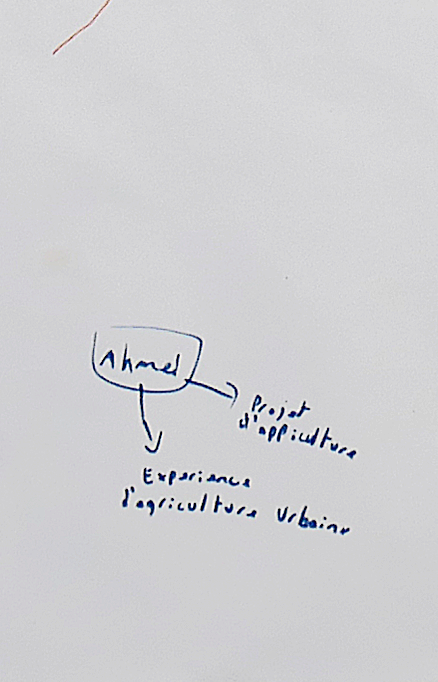 Ahmed
Projet
d'appiculture
Experience
d'agriculture Urbaine